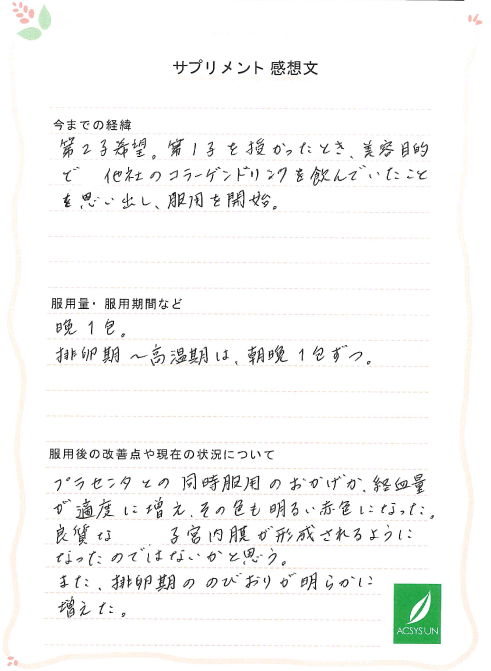 サプリメント 感想文
今までの経緯
第2子希望。第1子を授かったとき、美容目的
で 他社のコラーゲンドリンクを飲んでいたこと
を思い出し、服用を開始。
服用量・服用期間など
晩1包。
排卵期〜高温期は、朝晩1包ずつ。
服用後の改善点や現在の状況について
プラセンタとの同時服用のおかげか、経血量
が適度に増え、その色も明るい赤色になった。
良質な 子宮内膜が形成されるように
なったのではないかと思う。
また、排卵期ののびおりが明らかに
増えた。
ACSYSUN